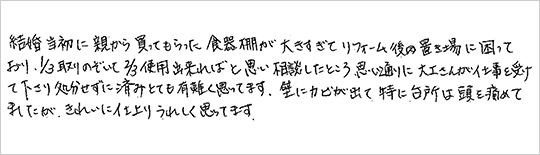 結婚当初に親から買ってもらった食器棚が大きすぎてリフォーム後の置き場に困って
おり、1/3取りのぞいて2/3使用出来ればと思い相談したところ思い通りに大工さんが仕事を受け
て下さり処分せずに済みとても有難く思ってます、壁にカビが出て特に台所は頭を痛めて
ましたが、きれいに仕上りうれしく思ってます、